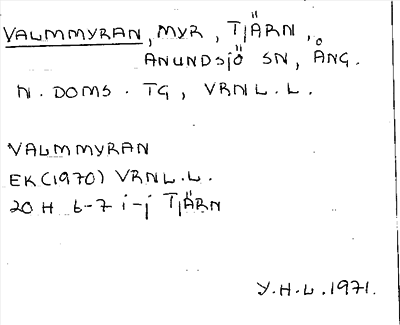 VALMMYRAN, MYR, TJÄRN,
ANUNDSJÖ SN, ÅNG.
N. DOMS. TG, VRNL.L.
VALMMYRAN
EK(1970) VRNL.L.
20 H 6-7 i-j TJÄRN
Y.H.L.1971.